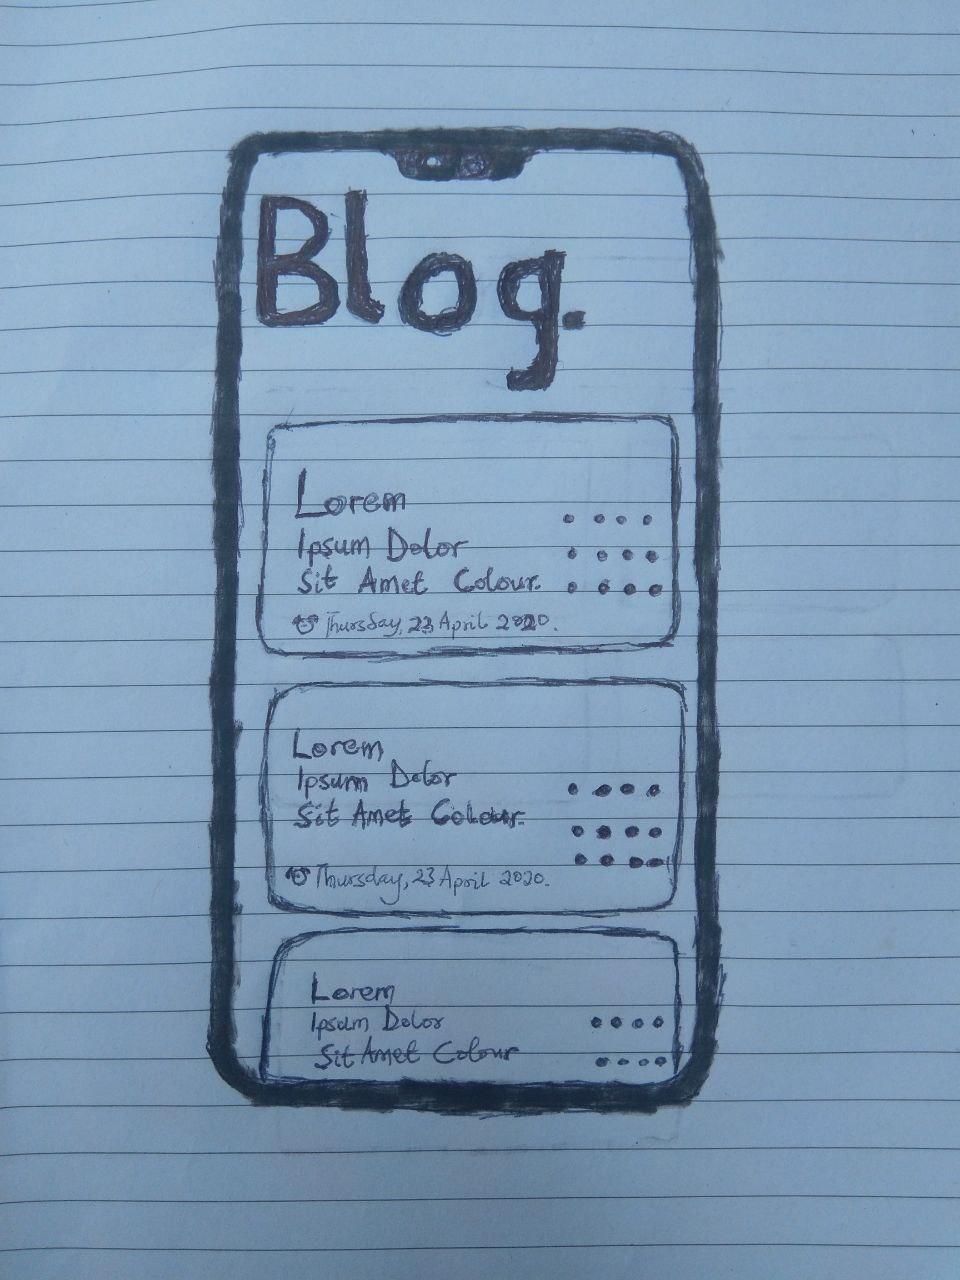 Blog.
Lorem
Ipsum Dolor
Sit Amet Colour.
Thursday, 23 April 2020.
Lorem
Ipsum Dolor
Sit Amet Colour.
Thursday, 23 April 2020.
Lorem
Ipsum Dolor
Sit Amet Colour